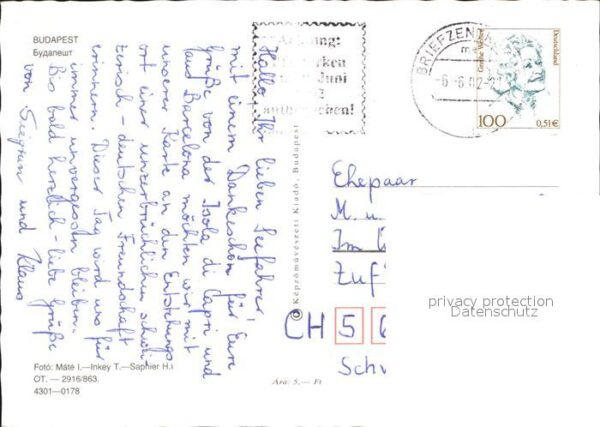 BUDAPEST
Будапешт
Hallo, Ihr lieben Seefahrer,
mit einem Dankeschön für Eure
Grüße von der Isola di Capri und
aus Barcelona möchten wir mit
unserer Karte an den Entstehungs-
ort einer unzerbrüchlichen schwei-
zerisch-deutschen Freundschaft
erinnern. Dieser Tag wird uns für
immer unvergessen bleiben.
Bis bald herzlich-liebe Grüße
von Siegrun und Klaus
Fotó: Máté I.—Inkey T.—Saphier H.
OT. — 2916/863.
4301—0178
Képzőművészeti Kiadó, Budapest
Ára: 5,— Ft
Achtung:
Juni
BRIEFZEN
-6.-6.02-
Grethe Weiser
Deutschland
100
0,51 €
Ehepaar
M. u.
Im
Zuf
CH 5 6
Schw
privacy protection
Datenschutz